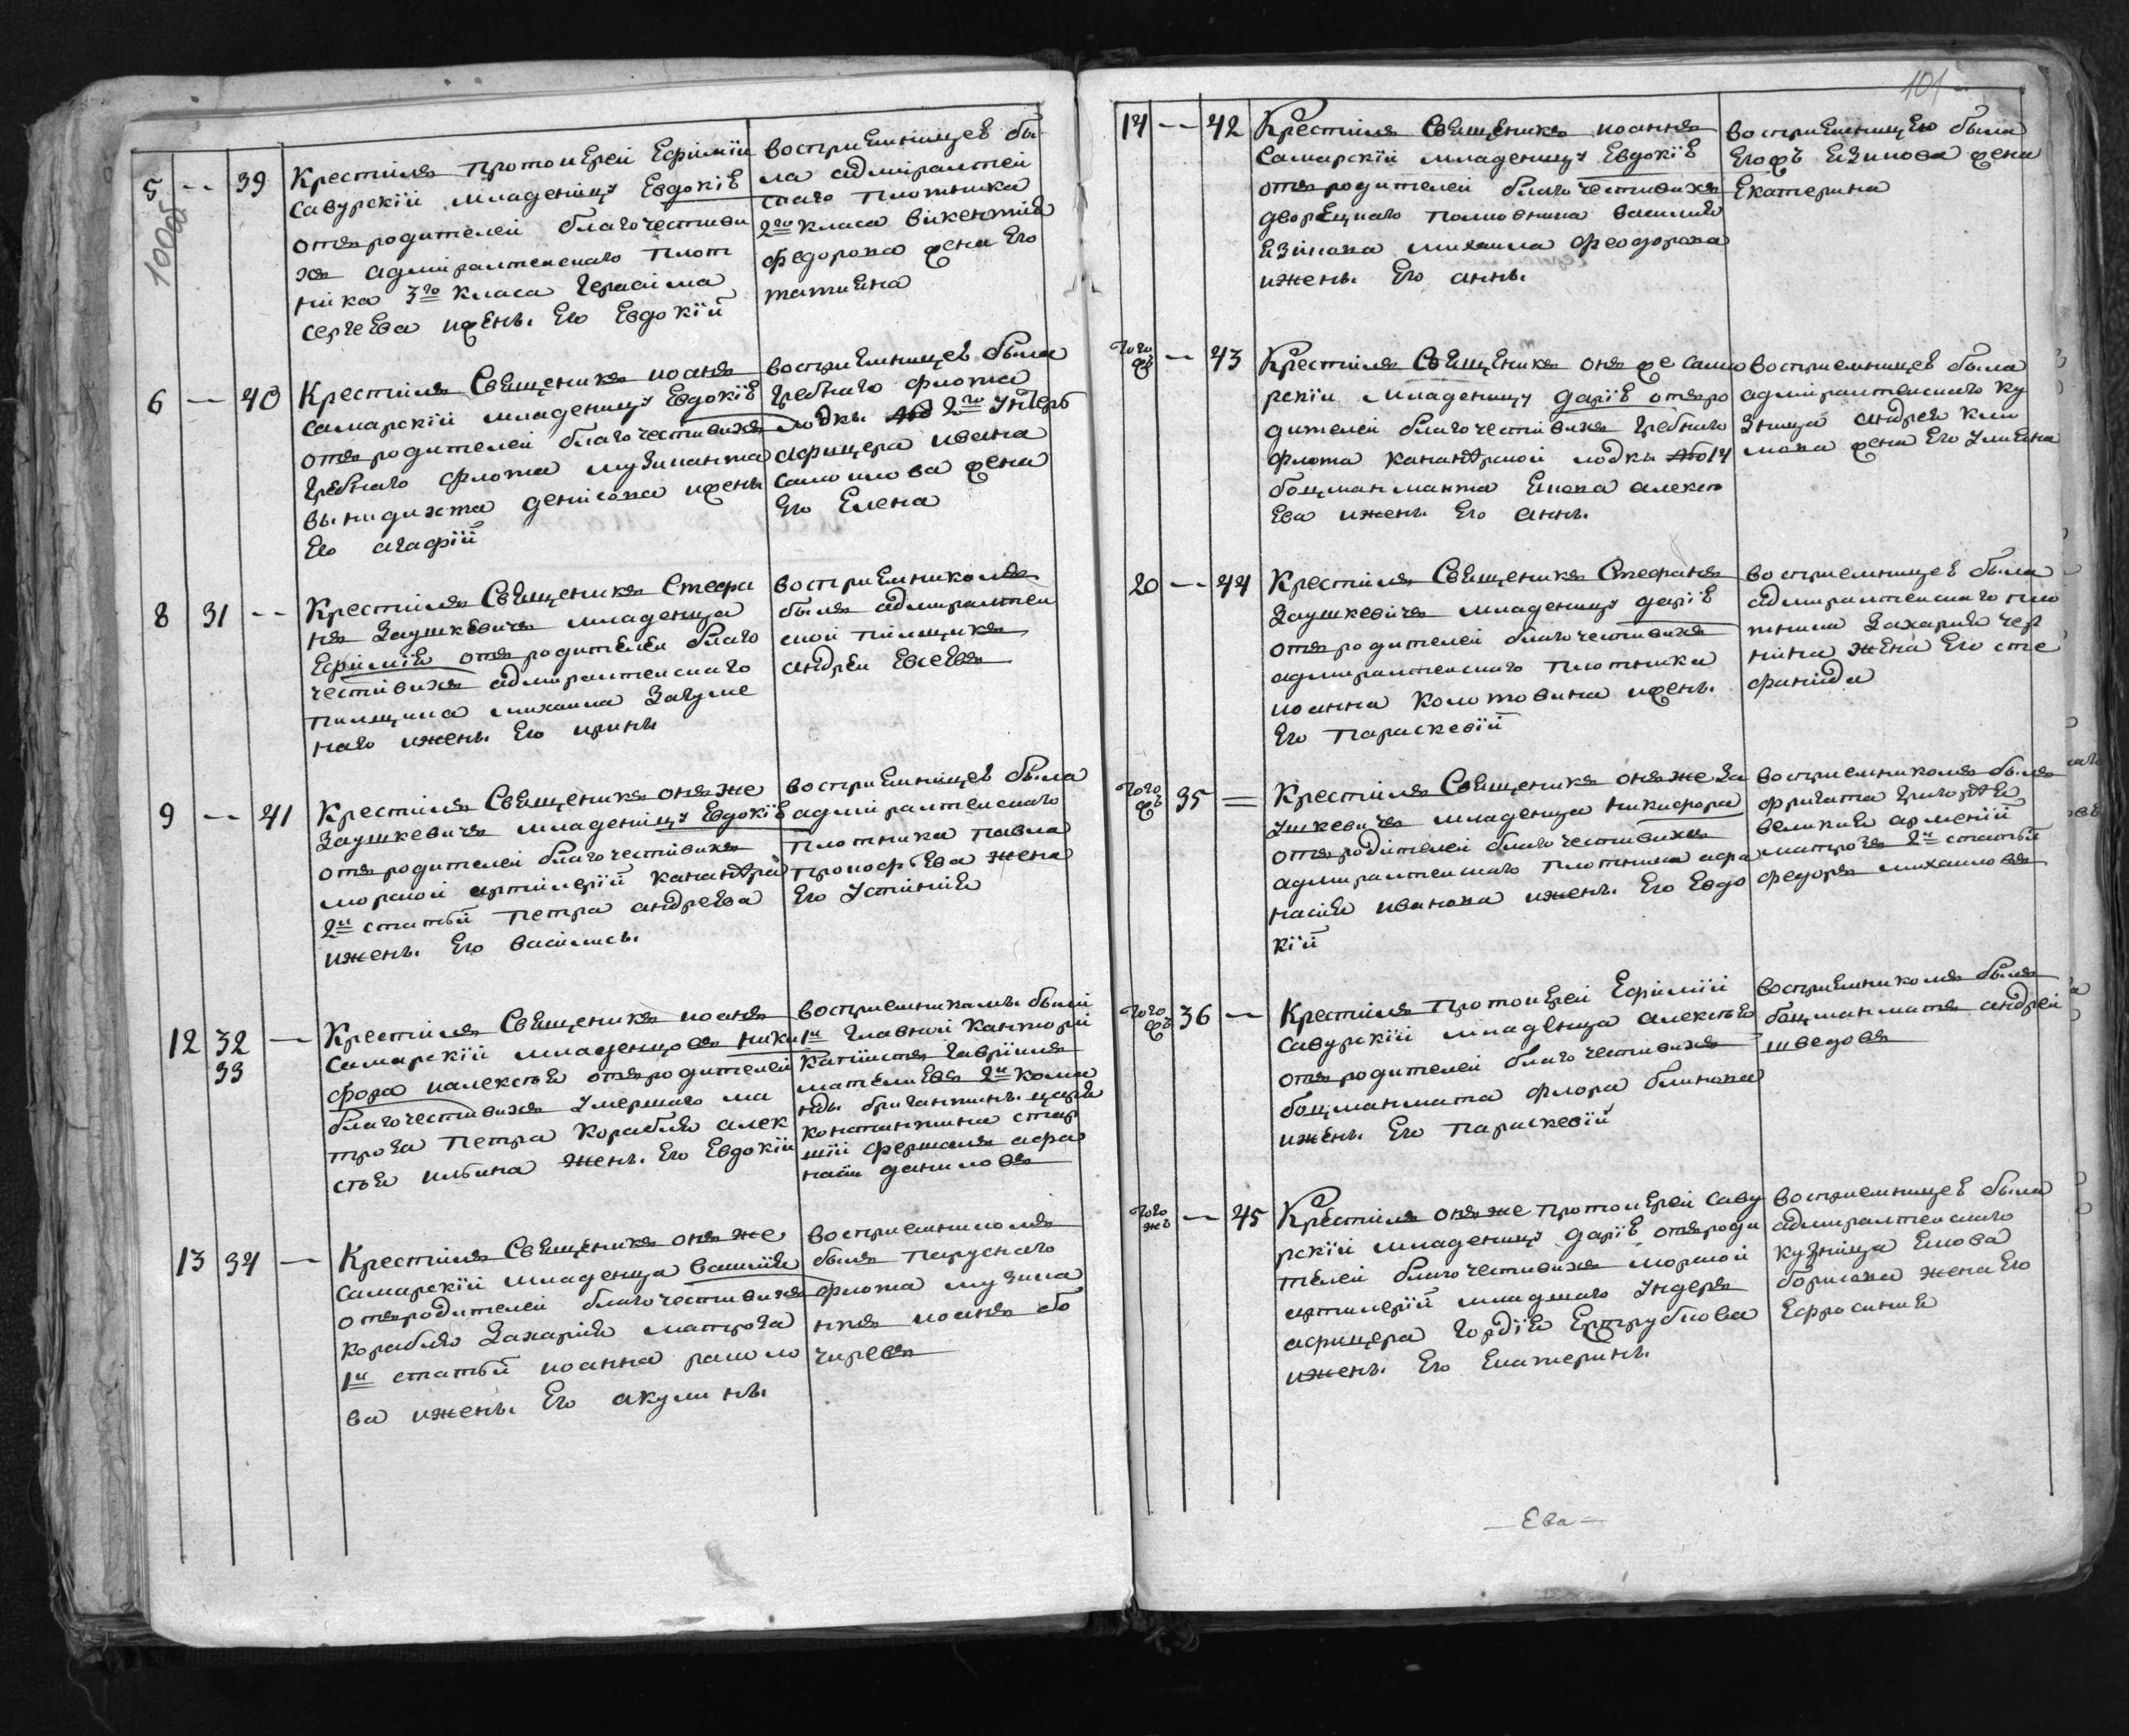 100об
5 -- 39 Крестилъ протоиерей Ефимий
Савурский младеницу Евдокію
отъ родителей благочестивы
хъ адмиралтенскаго плот
ника 3го класа Герасима
сергеева ижены его Евдокїи
восприемницею бы
ла адмиралтей
скаго плотника
2го класа викентия
федорова жена Его
татияна
6 — 40 Крестилъ Священикъ иоанъ
самарскїй младеницу Евдокїю
отъ родителей благочестивихъ
гребнаго флота музиканта
денисова ижены
Его агафїи
восприемницею была
гребнаго флота
лодки 2го унтеръ
афицера ивана
самоилова жена
Его Елена
8 31 -- Крестилъ Священикъ Стефа
нъ Заушкевичъ младенца
Ефимїя отъ родителей благо
честивихъ адмиралтенскаго
пилщика михаила Загуме
наго ижены Его ирины
восприемникомъ
былъ адмиралтей
ской пилщикъ
андрей Евсеевъ
9 -- 41 Крестилъ Священикъ онъ же
Заушкевичъ младеницу Евдокїю
отъ родителей благочестивихъ
морской артилерїи канантра
2й статьи петра андреева
ижены Его василисы
восприемницею была
адмиралтенскаго
плотника павла
прокофьева жена
Его Устиния
12 32 33 — Крестилъ Священикъ иоанъ
самарскїй младенцовъ ники
фора иалексия отъ родителей
благочестивихъ умершаго ма
троза петра корабля алек
сия илина жены Его Евдокїи
восприемниками были
1й главной канторы
капиистъ гаврїилъ
матвеевъ 2й коман
ды бригантины царя
константина стар
шїй фершалъ афа
насїй даниловъ
13 34 — Крестилъ Священикъ онъ же
самарскїй младенца василия
отъ родителей благочестивихъ
корабля Захария матроза
1й статьи иоанна рамоло
ва ижены Его акулины
восприемникомъ
былъ паруснаго
флота музика
нтъ иоанъ бо
чиревъ
101
14 -- 42 Крестилъ Священикъ иоаннъ
самарскїй младеницу Евдокїю
отъ родителей благочестивихъ
дворецкаго полковника василия
язикова михаила феодорова
ижены Его анны
восприемницею была
Егожъ язикова жена
Екатерина
того жъ -- 43 Крестилъ Священикъ онъ же сама
рскїй младеницу дарїю отъ ро
дителей благочестивихъ гребнаго
флота канантрской лодки №14
боцманманта Якова алексе
Ева ижены Его анны
восприемницею была
адмиралтенскаго ку
знеца андрея кли
мова жена Его Улияна
20 -- 44 Крестилъ Священикъ Стефанъ
Заушкевичъ младеницу дарїю
отъ родителей благочестивихъ
адмиралтенскаго плотника
иоанна колотовина ижены
Его параскевїи
восприемницею была
адмиралтенскаго пло
тника Захария чер
нина жена Его сте
фанида
того жъ 35 = Крестилъ Священикъ онъ же За
ушкевичъ младенца никифора
отъ родителей благочестивихъ
адмиралтенскаго плотника афа
насия иванова ижены Его Евдо
кїи
восприемникомъ былъ
фригата григория
великия армении
матрозъ 2й статьи
федоръ михаиловъ
того жъ 36 — Крестилъ протоиерей Ефимїй
савурскїй младенца алексия
отъ родителей благочестивихъ
боцманмата флора блинова
ижены Его параскевїи
восприемникомъ былъ
боцманматъ андрей
шведовъ
того жъ — 45 Крестилъ онъ же протоиерей саву
рскїй младеницу дарїю отъ роди
телей благочестивихъ морской
артилерїи младшаго ундеръ
афицера гордїя Ертрубиова
ижены Его Екатерины
восприемницею была
адмиралтенскаго
кузнеца Якова
борисова жена Его
Ефросиния
— Ева —